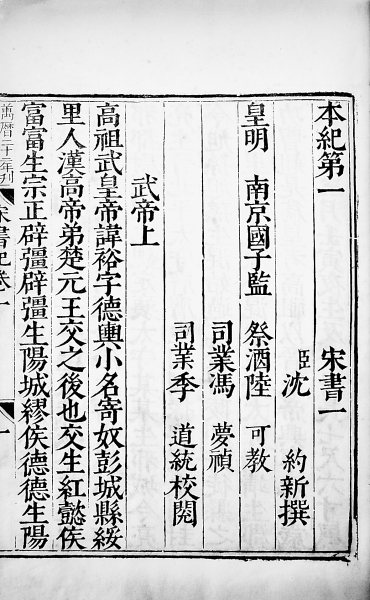 本紀第一 宋書一
臣沈 約新撰
皇明 南京國子監 祭酒陸 可教
司業馮 夢禎
司業季 道統校閱
武帝上
高祖武皇帝諱裕字德輿小名寄奴彭城縣綏
里人漢高帝弟楚元王交之後也交生紅懿侯
富富生宗正辟彊辟彊生陽城繆侯德德生陽
萬曆二十二年刊
宋書紀卷一
一